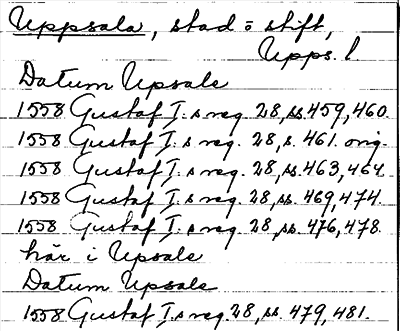 Uppsala, stad o stift,
Upps. l
Datum Upsale
1558 Gustaf I.s reg. 28, ss. 459, 460.
1558 Gustaf I.s reg. 28, s. 461. orig.
1558 Gustaf I.s reg. 28, ss. 463, 464.
1558 Gustaf I.s reg. 28, ss. 469, 474.
1558 Gustaf I.s reg. 28, ss. 476, 478.
här i Upsale
Datum Upsale
1558 Gustaf I.s reg. 28, ss. 479, 481.